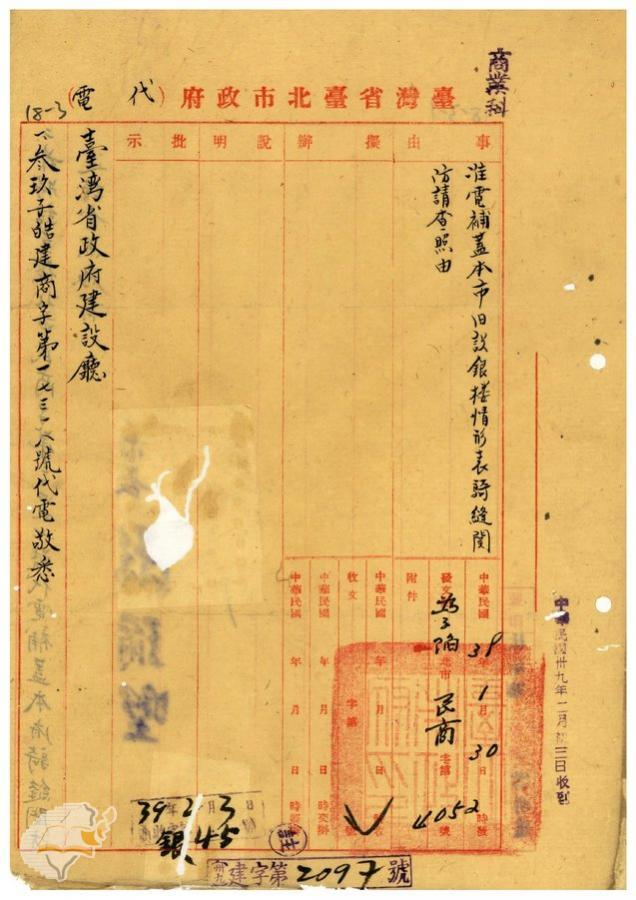 商業科
臺灣省臺北市政府
(代電)
事由
擬辦
說明
批示
准電補蓋本市旧設銀楼情形表騎縫関
防請查照由
中華民國39年1月30日時發
發文
北市民商字第4052號
附件
中華民國 年 月 日
收文 字第 號
中華民國 年 月 日 時交辦
中華民國 年 月 日 時
臺灣省政府建設廳
一、叁玖子皓建商字第一七三一八號代電敬悉
18-3
中華民國卅九年二月初三日收到
39 2 3
銀45
註
卅九建字第2097號